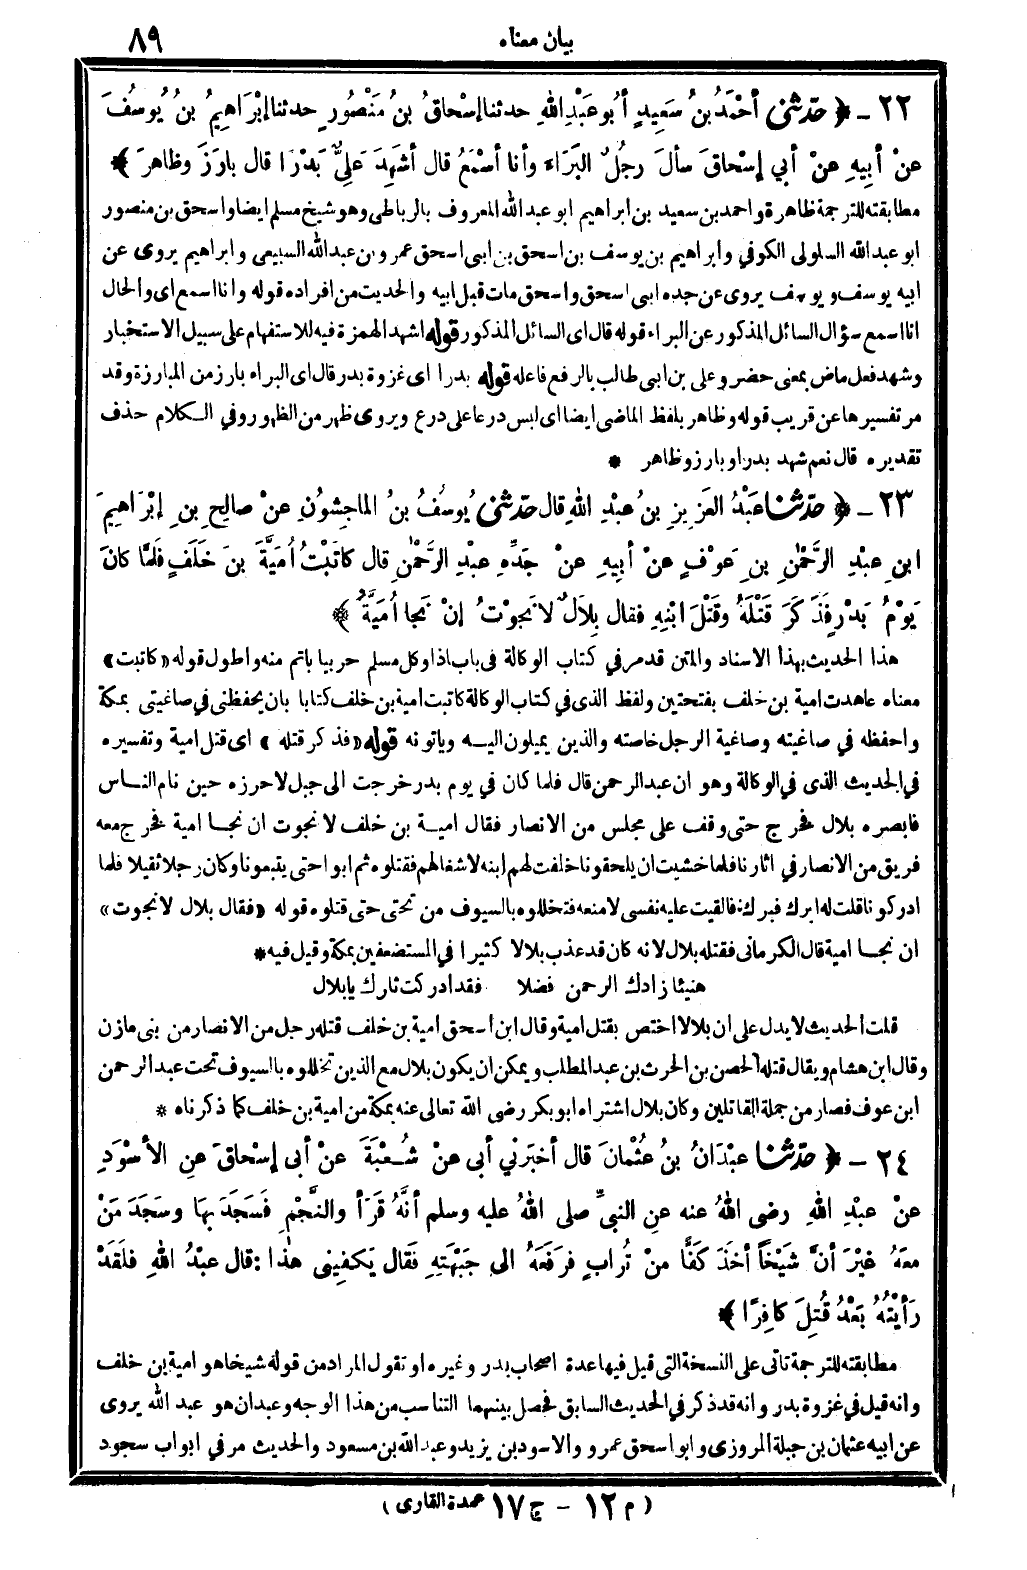 بيان معناه ٨٩
٢٢ - ﴿ حَدّثني أحْمَدُ بنُ سَعِيدٍ أبُو عَبْدِ اللهِ حدثنا إسْحاقُ بنُ مَنْصُورٍ حدثنا إبْرَاهِيمُ بنُ يُوسُفَ
عنْ أبِيهِ عنْ أبي إسْحاقَ سألَ رجُلٌ البَرَاءَ وأنا أسْمَعُ قال أشَهِدَ عَلِيٌّ بَدْرًا قال بارَزَ وظاهرَ ﴾
مطابقته للترجمة ظاهرة واحمد بن سعيد بن ابراهيم ابو عبد الله المعروف بالرباطى وهو شيخ مسلم ايضا واسحق بن منصور
ابو عبد الله السلولى الكوفي وابراهيم بن يوسف بن اسحق بن ابى اسحق عمرو بن عبد الله السبيعى وابراهيم يروى عن
ابيه يوسف ويوسف يروى عن جده ابى اسحق واسحق مات قبل ابيه والحديث من افراده قوله وانا اسمع اى والحال
انا اسمع سؤال السائل المذكور عن البراء قوله قال اى السائل المذكور قوله اشهد الهمزة فيه للاستفهام على سبيل الاستخبار
وشهد فعل ماض بمعنى حضر وعلى بن ابى طالب بالرفع فاعله قوله بدرا اى غزوة بدر قال اى البراء بارز من المبارزة وقد
مر تفسيرها عن قريب قوله وظاهر بلفظ الماضى ايضا اى لبس درعا على درع ويروى ظهر من الظهور وفي الكلام حذف
تقديره قال نعم شهد بدرا وبارز وظاهر *
٢٣ - ﴿ حدّثنا عَبْدُ العَزِيزِ بنُ عبْدِ اللهِ قال حدّثني يُوسُفُ بنُ الماجِشُونِ عنْ صالِحِ بنِ إبْرَاهِيمَ
ابنِ عبْدِ الرَّحْمٰنِ بنِ عَوْفٍ عنْ أبيهِ عنْ جَدِّهِ عبْدِ الرَّحْمٰنِ قال كاتَبْتُ اُمَيَّةَ بنَ خَلَفٍ فَلَمَّا كانَ
يَوْمُ بَدْرٍ فَذَكَرَ قَتْلَهُ وقَتْلَ ابْنِهِ فقال بِلاَلٌ لا نَجوْتُ إنْ نَجا اُمَيَّةُ ﴾
هذا الحديث بهذا الاسناد والمتن قد مر في كتاب الوكالة فى باب اذا وكل مسلم حربيا باتم منه واطول قوله «كاتبت»
معناه عاهدت امية بن خلف بفتحتين ولفظ الذى في كتاب الوكالة كاتبت امية بن خلف كتابا بان يحفظنى في صاغيتى بمكة
واحفظه في صاغيته وصاغية الرجل خاصته والذين يميلون اليه وياتونه قوله «فذكر قتله» اى قتل امية وتفسيره
في الحديث الذى في الوكالة وهو ان عبد الرحمن قال فلما كان في يوم بدر خرجت الى جبل لاحرزه حين نام الناس
فابصره بلال فخرج حتى وقف على مجلس من الانصار فقال امية بن خلف لا نجوت ان نجا امية فخرج معه
فريق من الانصار في اثارنا فلما خشيت ان يلحقونا خلفت لهم ابنه لاشغالهم فقتلوه ثم ابوا حتى يتبعونا وكان رجلا ثقيلا فلما
ادركونا قلت له ابرك فبرك فالقيت عليه نفسى لامنعه فتخللوه بالسيوف من تحتى حتى قتلوه قوله «فقال بلال لا نجوت»
ان نجا امية قال الكرمانى فقتله بلال لانه كان قد عذب بلالا كثيرا في المستضعفين بمكة وقيل فيه *
هنيئا زادك الرحمن فضلا فقد ادركت ثارك يا بلال
قلت الحديث لا يدل على ان بلالا اختص بقتل امية وقال ابن اسحق امية بن خلف قتله رجل من الانصار من بنى مازن
وقال ابن هشام ويقال قتله الحصن بن الحرث بن عبد المطلب ويمكن ان يكون بلال مع الذين تخللوه بالسيوف تحت عبد الرحمن
ابن عوف فصار من جملة القاتلين وكان بلال اشتراه ابو بكر رضى الله تعالى عنه بمكة من امية بن خلف كما ذكرناه *
٢٤ - ﴿ حدّثنا عبْدَانُ بنُ عُثْمانَ قال أخبَرَني أبى عنْ شُعْبَةَ عنْ أبى إسْحاقَ عنِ الأسْوَدِ
عنْ عبْدِ اللهِ رضى اللهُ عنه عنِ النبيِّ صلى اللهُ عليه وسلم أنَّهُ قَرَأ والنَّجْمِ فَسَجَدَ بِهَا وسَجَدَ مَنْ
معَهُ غيْرَ أنَّ شَيْخًا أخَذَ كَفًّا منْ تُرابٍ فرَفَعَهُ الى جَبْهَتِهِ فَقال يَكفِينى هٰذا : قال عبْدُ اللهِ فلَقَدْ
رَأيْتُهُ بَعْدُ قُتِلَ كافِرًا ﴾
مطابقته للترجمة تاتى على النسخة التى قيل فيها عدة اصحاب بدر وغيره او تقول المراد من قوله شيخا هو امية بن خلف
وانه قيل في غزوة بدر وانه قد ذكر في الحديث السابق فحصل بينهما التناسب من هذا الوجه وعبدان هو عبد الله يروى
عن ابيه عثمان بن جبلة المروزى وابو اسحق عمرو والاسود بن يزيد وعبد الله بن مسعود والحديث مر في ابواب سجود
( م ١٢ - ج ١٧ عمدة القارى )